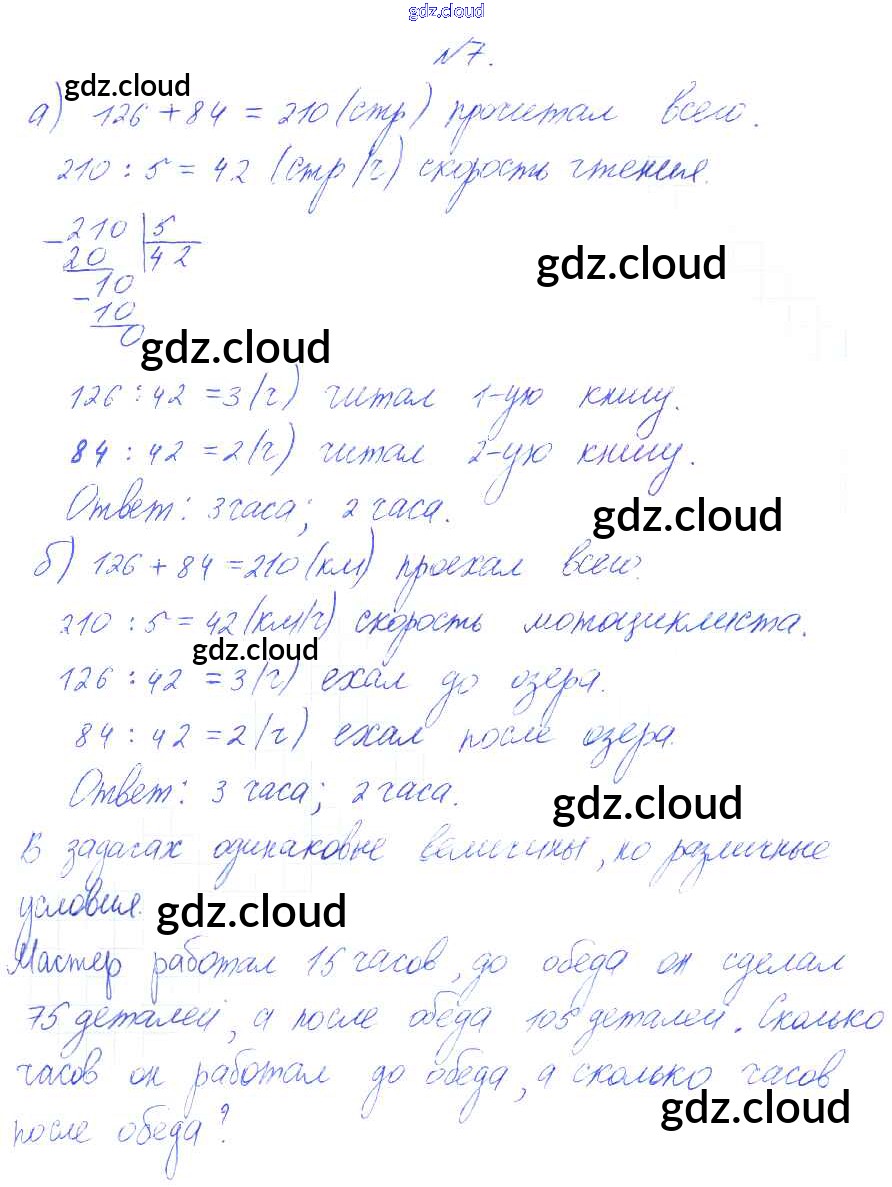 gdz.cloud
№7.
gdz.cloud
а) 126 + 84 = 210 (стр) прочитал всего.
210 : 5 = 42 (стр/ч) скорость чтения.
- 210 | 5
20 42
gdz.cloud
- 10
10
0
gdz.cloud
126 : 42 = 3 (ч) читал 1-ую книгу.
84 : 42 = 2 (ч) читал 2-ую книгу.
Ответ: 3 часа; 2 часа.
gdz.cloud
б) 126 + 84 = 210 (км) проехал всего.
210 : 5 = 42 (км/ч) скорость мотоциклиста.
gdz.cloud
126 : 42 = 3 (ч) ехал до озера.
84 : 42 = 2 (ч) ехал после озера.
Ответ: 3 часа; 2 часа.
gdz.cloud
В задачах одинаковые величины, но различные
условия.
gdz.cloud
Мастер работал 15 часов, до обеда он сделал
75 деталей, а после обеда 105 деталей. Сколько
часов он работал до обеда, а сколько часов
gdz.cloud
после обеда?